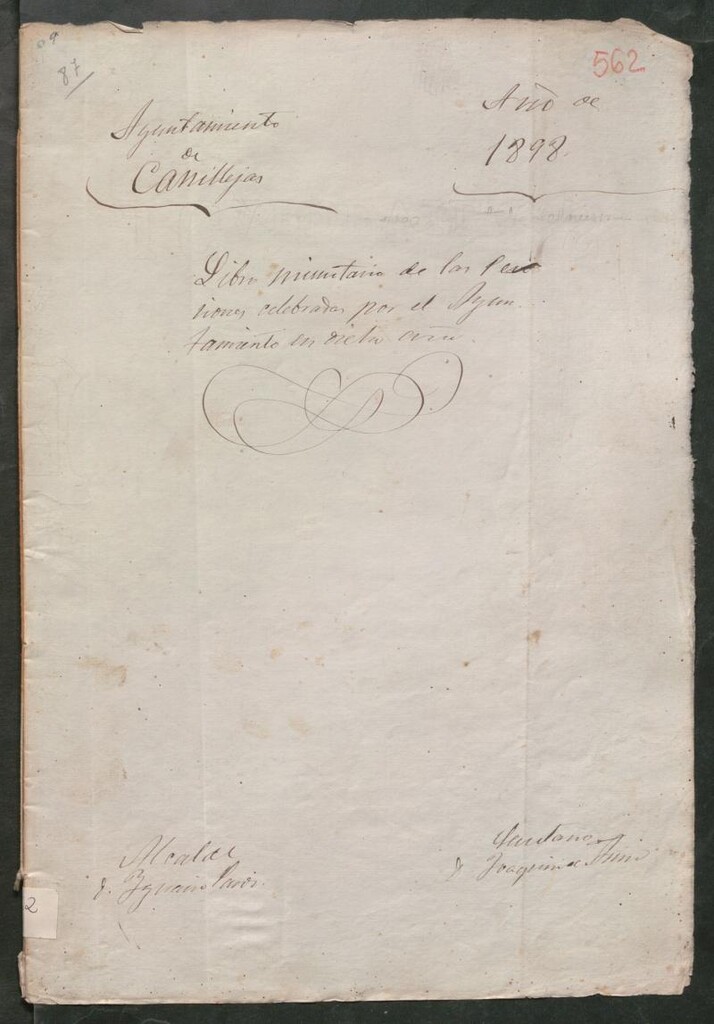 87
562
Ayuntamiento
de
Canillejas
Año de
1898
Libro minutario de las Sesi
siones celebradas por el Ayun
tamiento en dicho año.
Alcalde
D. Ygnacio
Secretario
D. Joaquin
2